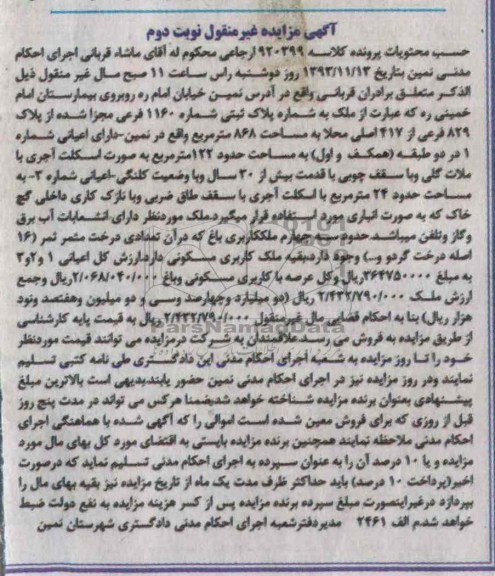 آگهی مزایده غیرمنقول نوبت دوم
حسب محتویات پرونده کلاسه ۹۲۰۳۹۹ ارجاعی محکوم له آقای ماشاء قربانی اجرای احکام
مدنی نمین بتاریخ ۱۳۹۳/۱۱/۱۳ روز دوشنبه راس ساعت ۱۱ صبح مال غیر منقول ذیل
الذکر متعلق برادران قربانی واقع در آدرس نمین خیابان امام ره روبروی بیمارستان امام
خمینی ره که عبارت از ملک به شماره پلاک ثبتی شماره ۱۱۶۰ فرعی مجزا شده از پلاک
۸۲۹ فرعی از ۴۱۷ اصلی محلا به مساحت ۸۶۸ مترمربع واقع در نمین-دارای اعیانی شماره
۱ در دو طبقه (همکف و اول) به مساحت حدود ۱۲۲مترمربع به صورت اسکلت آجری با
ملات گلی وبا سقف چوبی با قدمت بیش از ۳۰ سال وبا وضعیت کلنگی-اعیانی شماره ۳- به
مساحت حدود ۲۴ مترمربع با اسکلت آجری با سقف طاق ضربی وبا نازک کاری داخلی گچ
خاک که به صورت انباری مورد استفاده قرار میگیرد.ملک موردنظر دارای انشعابات آب برق
وگاز وتلفن میباشد.حدود سه چهارم ملککاربری باغ که درآن تعدادی درخت مثمر ثمر (۱۶
اصله درخت گردو و..) وجود دارد.بقیه ملک کاربری مسکونی دارد.ارزش کل اعیانی ۱ و۲و۳
به مبلغ ۳۶۴۷۵۰۰۰۰ریال.وکل عرصه با کاربری مسکونی وباغ ۲/۰۶۸/۰۴۰/۰۰۰ریال وجمع
ارزش ملک ۲/۴۳۲/۷۹۰/۰۰۰ ریال (دو میلیارد وچهارصد وسی و دو میلیون وهفتصد ونود
هزار ریال) بنا به احکام قضایی مال غیرمنقول ۲/۴۳۲/۷۹۰/۰۰۰ ریال به قیمت پایه کارشناسی
از طریق مزایده به فروش می رسد.علاقمندان به شرکت درمزایده می توانند قیمت موردنظر
خود را تا روز مزایده به شعبه اجرای احکام مدنی این دادگستری طی نامه کتبی تسلیم
نمایند ودر روز مزایده نیز در اجرای احکام مدنی نمین حضور یابند.بدیهی است بالاترین مبلغ
پیشنهادی بعنوان برنده مزایده شناخته خواهد شد.بضمنا هرکس می تواند در مدت پنج روز
قبل از روزی که برای فروش معین شده است اموالی را که آگهی شده با هماهنگی اجرای
احکام مدنی ملاحظه نمایند همچنین برنده مزایده بایستی به اقتضای مورد کل بهای مال مورد
مزایده و یا ۱۰ درصد آن را به عنوان سپرده به اجرای احکام مدنی تسلیم نماید که درصورت
اخیر(پرداخت ۱۰ درصد) باید حداکثر ظرف مدت یک ماه از تاریخ مزایده نیز بقیه بهای مال را
بپردازد درغیراینصورت مبلغ سپرده برنده مزایده پس از کسر هزینه مزایده به نفع دولت ضبط
خواهد شد.م الف ۲۴۶۱ مدیردفترشعبه اجرای احکام مدنی دادگستری شهرستان نمین
ParsNamadData